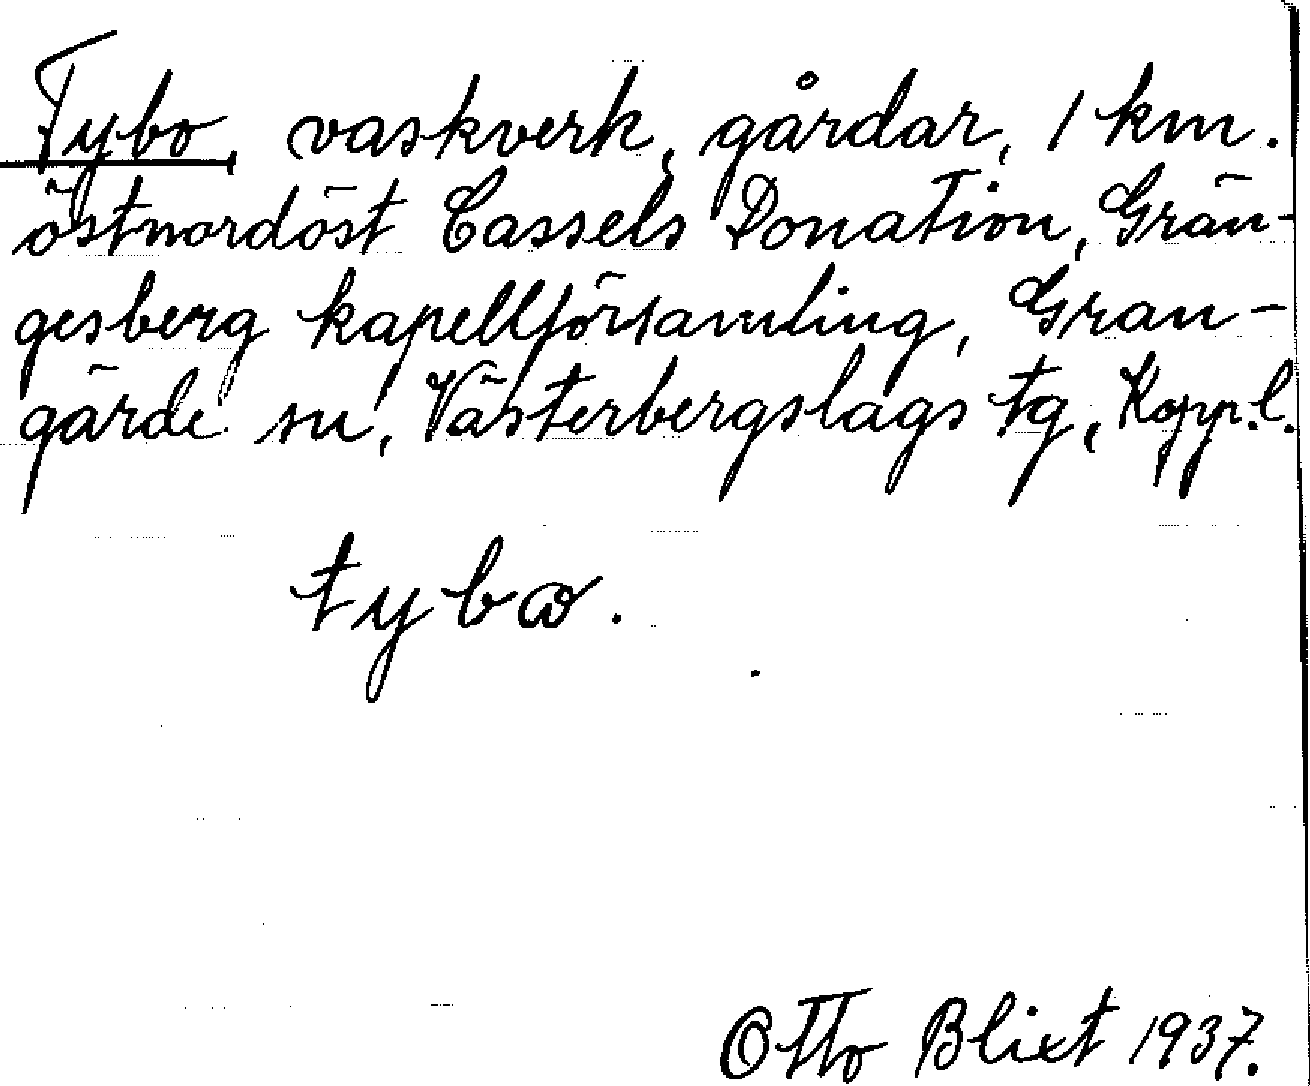 Tybo, vaskverk, gårdar, 1 km.
östnordöst Cassels Donation, Grän-
gesberg kapellförsamling, Gran-
gärde sn, Västerbergslags tg, Kopp.l.
tybω.
Otto Blixt 1937.